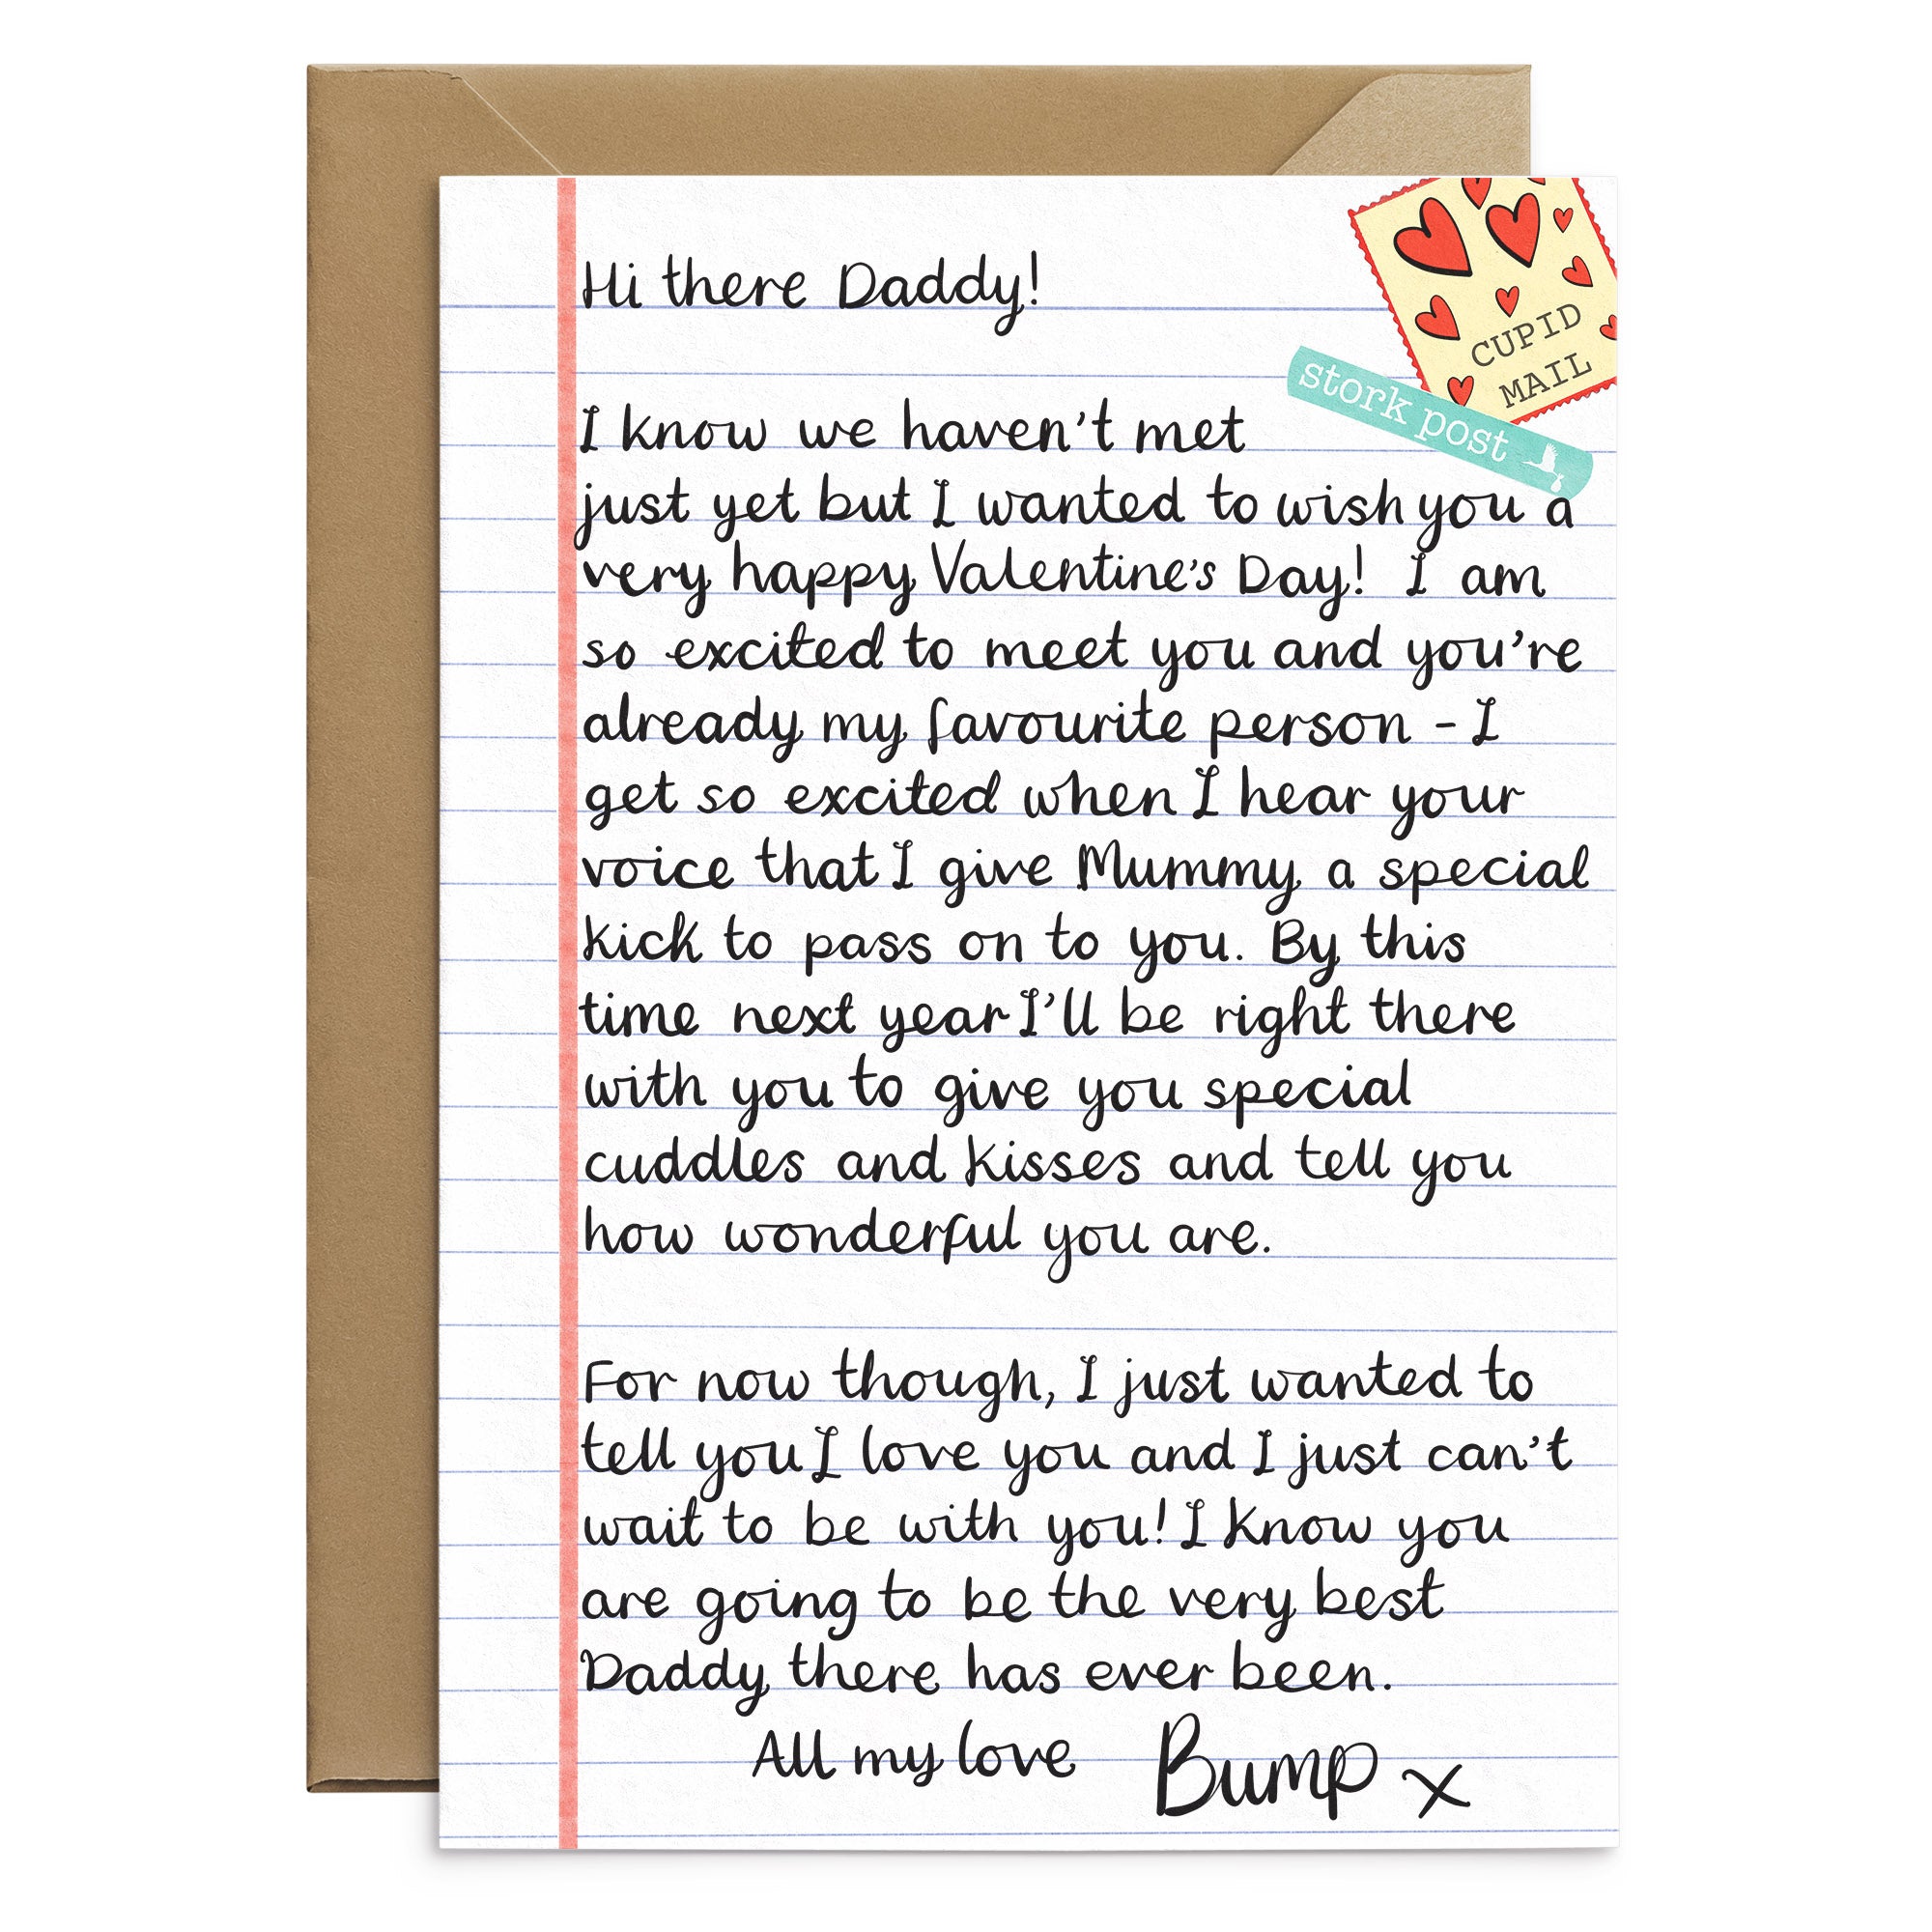 Hi there Daddy!
CUPID
MAIL
stork post
I know we haven't met
just yet but I wanted to wish you a
very happy Valentine's Day! I am
so excited to meet you and you're
already my favourite person - I
get so excited when I hear your
voice that I give Mummy a special
kick to pass on to you. By this
time next year I'll be right there
with you to give you special
cuddles and kisses and tell you
how wonderful you are.
For now though, I just wanted to
tell you I love you and I just can't
wait to be with you! I know you
are going to be the very best
Daddy there has ever been.
All my love Bump x